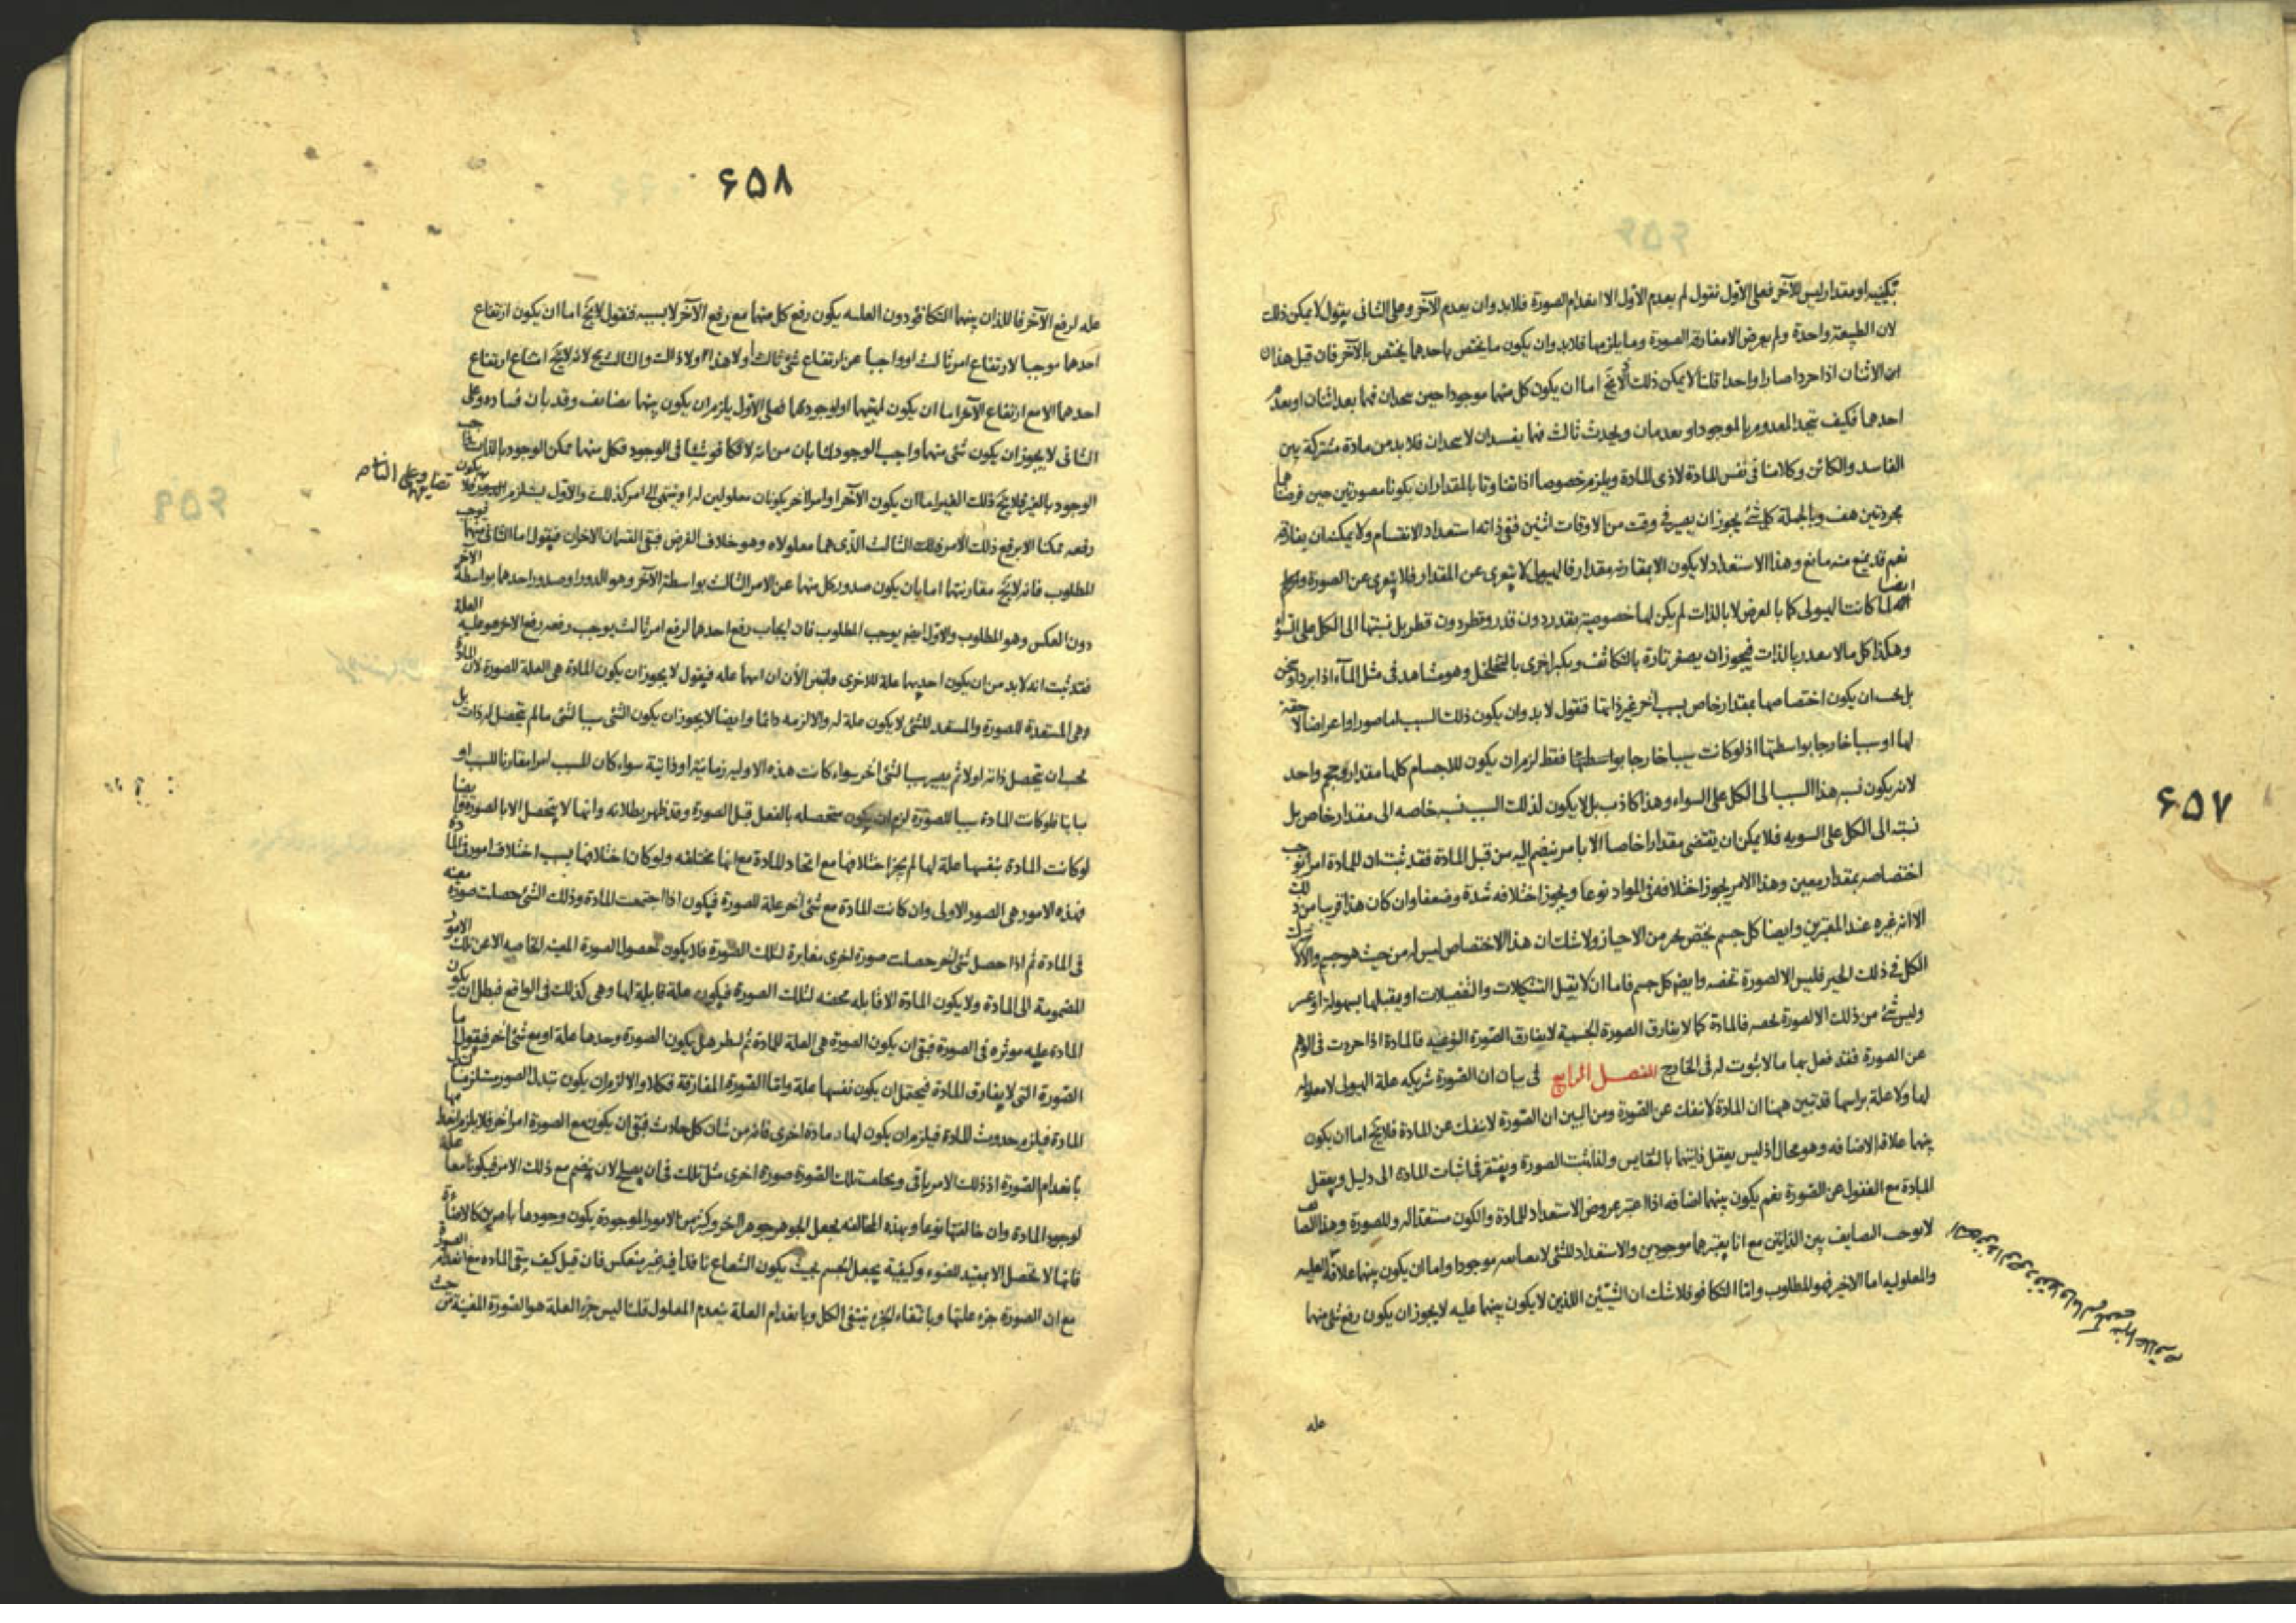 ۶۵۷
بكيفية او مقدار ليس للآخر فعلى الاول نقول لم يعدم الاول الا انعدام الصورة فلا بد وان يعدم الآخر وعلى الثانى يقول لا يمكن ذلك
لان الطبيعة واحدة ولم يعرض الا مفارقة الصورة وما يلزمها فلا بد وان يكون ما يختص باحدهما يختص بالآخر فان قيل هذان
الاثنان اذا جردا صارا واحدا قلنا لا يمكن ذلك لانه لا يخ اما ان يكون كل منهما موجودا حين يتحدان فهما بعد اثنان او يعدم
احدهما فكيف يتحد المعدوم بالموجود او يعدمان ويحدث ثالث فهما يفسدان لا يتحدان فلا بد من مادة مشتركة بين
الفاسد والكائن وكلامنا فى نفس المادة لا ذى المادة ويلزم خصوصا اذا تفاوتا بالمقدار ان يكونا مصورتين حين فرضناهما
مجردتين هف وبالجملة كل شئ يجوز ان يصير فى وقت من الاوقات اثنين ففى ذاته استعداد الانقسام ولا يمكنه ان يفارقه
نعم قد يمنع منه مانع وهذا الاستعداد لا يكون الا بمقارنه مقدار فالهيولى لا يتعرى عن المقدار فلا يتعرى عن الصورة
ايضا لما كانت الهيولى كما بالعرض لا بالذات لم يكن لها خصوصية بقدر دون قدر وقطر دون قطر بل نسبتها الى الكل على السوا
وهكذا كل ما لا بعد بالذات فيجوز ان يصغر تارة بالتكاثف ويكبر اخرى بالتخلخل وهو مشاهد فى مثل المآء اذا برد او سخن
بل يجب ان يكون اختصاصها بمقدار خاص بسبب آخر غير ذاتها فنقول لا بد وان يكون ذلك السبب اما صورا او اعراضا لاحقة
لها او سببا خارجا بواسطتها اذ لو كانت سببا خارجا بواسطتها فقط لزم ان يكون للاجسام كلها مقدار وحجم واحد
لانه يكون نسبه هذا السبب الى الكل على السواء وهذا كاذب بل لا يكون لذلك السبب نسبه خاصه الى مقدار خاص بل
نسبته الى الكل على السويه فلا يمكن ان يقتضى مقدارا خاصا الا بامر ينضم اليه من قبل المادة فقد ثبت ان للمادة امرا يوجب
اختصاصه بمقدار معين وهذا الامر يجوز اختلافه فى المواد نوعا ويجوز اختلافه شدة وضعفا وان كان هذا قريبا من ذلك
الا انه غيره عند المعتبرين وايضا كل جسم يختص بحيز من الاحياز ولا شك ان هذا الاختصاص ليس له من حيث هو جسم والا لاشترك
الكل فى ذلك الحيز فليس الا لصورة تخصه وايضا كل جسم فاما ان لا يقبل التشكيلات والتفصيلات او يقبلها بسهولة او عسر
وليس شئ من ذلك الا لصورة تخصه فالمادة كما لا يفارق الصورة الجسمية لا يفارق الصورة النوعيه فالمادة اذا جردت فى الوهم
عن الصورة فقد فعل بها ما لا ثبوت له فى الخارج الفصل الرابع فى بيان ان الصورة شريكه علة الهيولى لا معلوله
لها ولا علة براسها قد تبين ههنا ان المادة لا تنفك عن الصورة ومن البين ان الصورة لا تنفك عن المادة فلا يخ اما ان يكون
بينهما علاقه الاضافه وهو محال اذ ليس يعقل ذاتيتهما بالتقايس ولذا يثبت الصورة ويفتقر فى اثبات المادة الى دليل ويعقل
المادة مع الغفول عن الصورة نعم يكون بينهما اضافه اذا اعتبر عروض الاستعداد للمادة والكون مستعدا له وللصورة وهذا التضايف
لا يوجب التضايف بين الذاتين مع انا يعتبرهما موجودين والاستعداد للشئ لا يصاحبه موجودا واما ان يكون بينهما علاقة العليه
والمعلوليه اما الاخير فهو المطلوب واما التكافو فلا شك ان الشيئين اللذين لا يكون بينهما عليه لا يجوز ان يكون رفع شئ منهما
عله
۶۵۸
عله لرفع الآخر فاللذان بينهما التكافؤ دون العليه يكون رفع كل منهما مع رفع الآخر لا بسببه فنقول لا يخ اما ان يكون ارتفاع
احدهما موجبا لارتفاع امر ثالث او واجبا عن ارتفاع شئ ثالث او لا هذا ولا ذاك والثالث مح لانه لا يخ امتناع ارتفاع
احدهما الا مع ارتفاع الآخر اما ان يكون لمهيتهما او لوجودهما فعلى الاول يلزم ان يكون بينهما تضايف وقد بان فساده وعلى
الثانى لا يجوز ان يكون شئ منهما واجب الوجود لما بان من انه لا تكافو شيئا فى الوجود فكل منهما ممكن الوجود بالذات واجب
الوجود بالغير فلا يخ ذلك الغير اما ان يكون الآخر او امرا آخر يكونان معلولين له او ينتهى الى امر كذلك والاول يستلزم
رفعه ممكنا الا برفع ذلك الامر ذلك الثالث الذى هما معلولاه وهو خلاف الفرض فبقى القسمان الاخران فيقول اما الثانى فيوجب
المطلوب فانه لا يخ مقارنتهما اما بان يكون صدور كل منهما عن الامر الثالث بواسطة الآخر وهو الدور او صدور احدهما بواسطة الآخر
دون العكس وهو المطلوب والاول ايضا يوجب المطلوب فان ايجاب رفع احدهما لرفع امر ثالث يوجب رفعه رفع الآخر هو عليه العلة
فقد ثبت انه لا بد من ان يكون احديهما علة للاخرى ولنبين الآن ان ايهما عله فيقول لا يجوز ان يكون المادة هى العلة للصورة لان المادة
هى المستعدة للصورة والمستعد للشئ لا يكون علة له والا لزمه دائما وايضا لا يجوز ان يكون الشئ سببا لشئ ما لم يتحصل له ذات بل
يجب ان يتحصل ذاته اولا ثم يصير سببا لشئ آخر سواء كانت هذه الاوليه زمانية او ذاتية سواء كان المسبب امرا مقارنا للسبب او
مباينا فلو كانت المادة سببا للصورة لزم ان يكون متحصله بالفعل قبل الصورة وقد ظهر بطلانه وانها لا يتحصل الا بالصورة وايضا
لو كانت المادة بنفسها علة لها لم يجز اختلافها مع اتحاد المادة مع انها مختلفه ولو كان اختلافها بسبب اختلاف امور فى المادة
فهذه الامور هى الصور الاولى وان كانت المادة مع شئ آخر علة للصورة فيكون اذا اجتمعت المادة وذلك الشئ حصلت صورة معينه
فى المادة ثم اذا حصل شئ آخر حصلت صورة اخرى مغايرة لتلك الصورة فلا يكون حصول الصورة المعينه الخاصيه الا عن تلك الامور
المضمومة الى المادة ولا يكون المادة الا قابله محضه لتلك الصورة فيكون علة قابلة لها وهى كذلك فى الواقع فبطل ان يكون
المادة عليه موثره فى الصورة فبقى ان يكون الصورة هى العلة للمادة ثم لننظر هل يكون الصورة وحدها علة او مع شئ آخر فيقول اما
الصورة التى لا يفارق المادة فيحتمل ان يكون نفسها علة واما الصورة المفارقة فكلا والا لزم ان يكون تبدل الصور يستلزم
المادة فيلزم حدوث المادة فيلزم ان يكون لها د مادة اخرى فانه من شان كل حادث فبقى ان يكون مع الصورة امرا آخر فلا يلزم
بانعدام الصورة اذ ذلك الامر باقى ويخلف تلك الصورة صورة اخرى مثل تلك فى ان يصلح لان ينضم مع ذلك الامر فيكونا معا علة
لوجود المادة وان خالفتها نوعا وبهذه المخالفه يجعل الجوهر جوهرا آخر وكثير من الامور الموجودة يكون وجودها بامرين كالاضاءة
فانها لا تحصل الا بمفيد للضوء وكيفية يجعل الجسم بحيث يكون الشعاع نافذا فيه غير منعكس فان قيل كيف يبقى المادة مع انعدام الصورة
مع ان الصورة جزء علتها وبانتفاء الجزء ينتفى الكل وبانعدام العلة ينعدم المعلول قلنا ليس جزء العلة هو الصورة المعينة من حيث